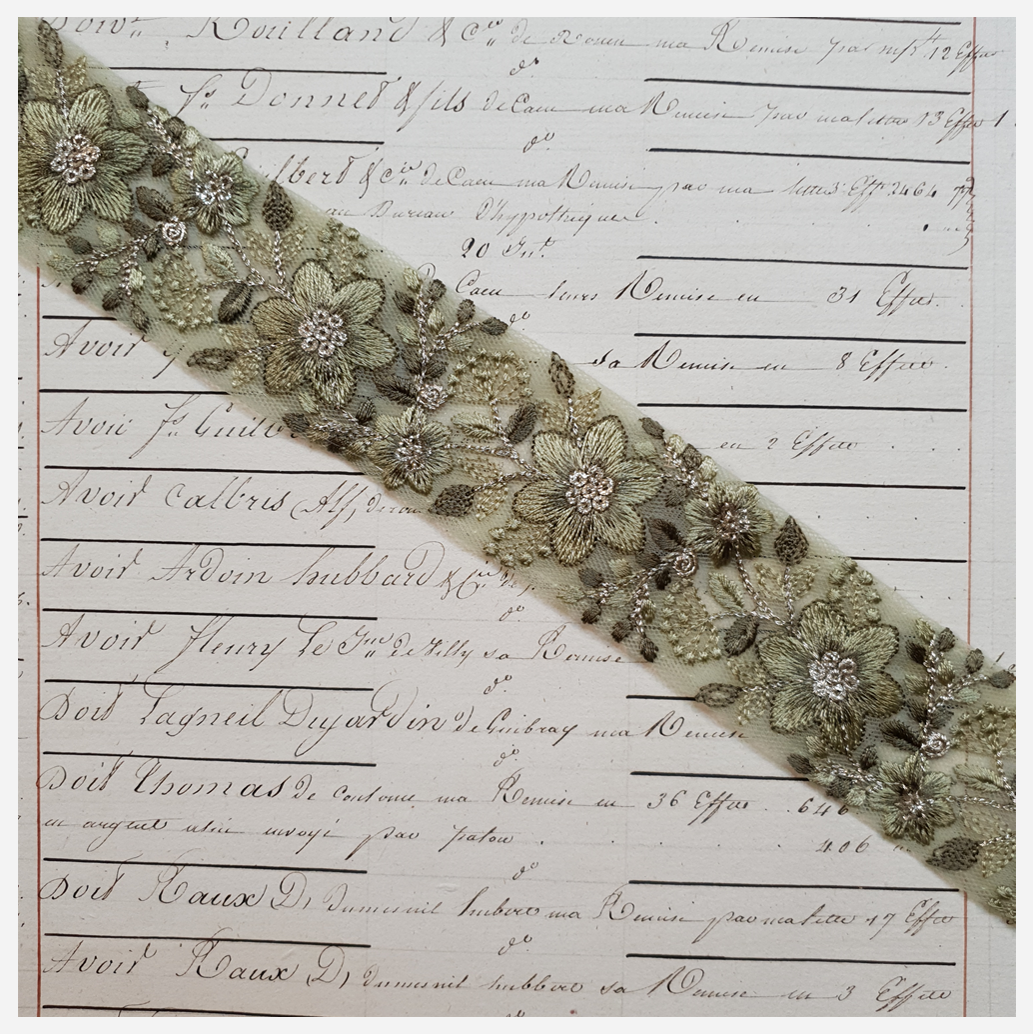 Doivt Rouilland & Cie de Rouen ma Remise par 12 Effets
do
fs Donnet & fils de Caen ma Remise par ma lettre 13 Effets 1
do
ilbert & Cie de Caen ma Remise par ma lettre 3 Effts 2464
au Bureau d'hypothèque
20 Jnt.
Caen leurs Remise en 31 Effets.
do
Avoir sa Remise en 8 Effets.
Avoir fs Guill en 2 Effets
Avoir Calbris Alf,
Avoir Ardoin hubbard & Cie de
do
Avoir fleury Le Jne de Tilly sa Remise
do
Doit Lagneil Dujardin de Guibray ma Remise
do
Doit Thomas de ma Remise en 36 Effets 646
en argent envoyé par 406
do
Doit Raux D, dumesnil hubert ma Remise par ma lettre 17 Effets
do
Avoir Raux D, dumesnil hubbert sa Remise en 3 Effets
do